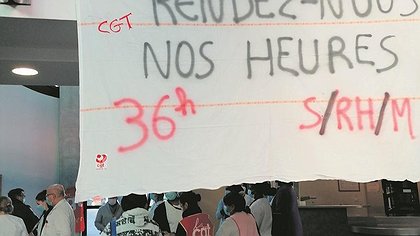 CGT
RENDEZ-NOUS
NOS HEURES
36h
S/RH/M
cgt
cgt